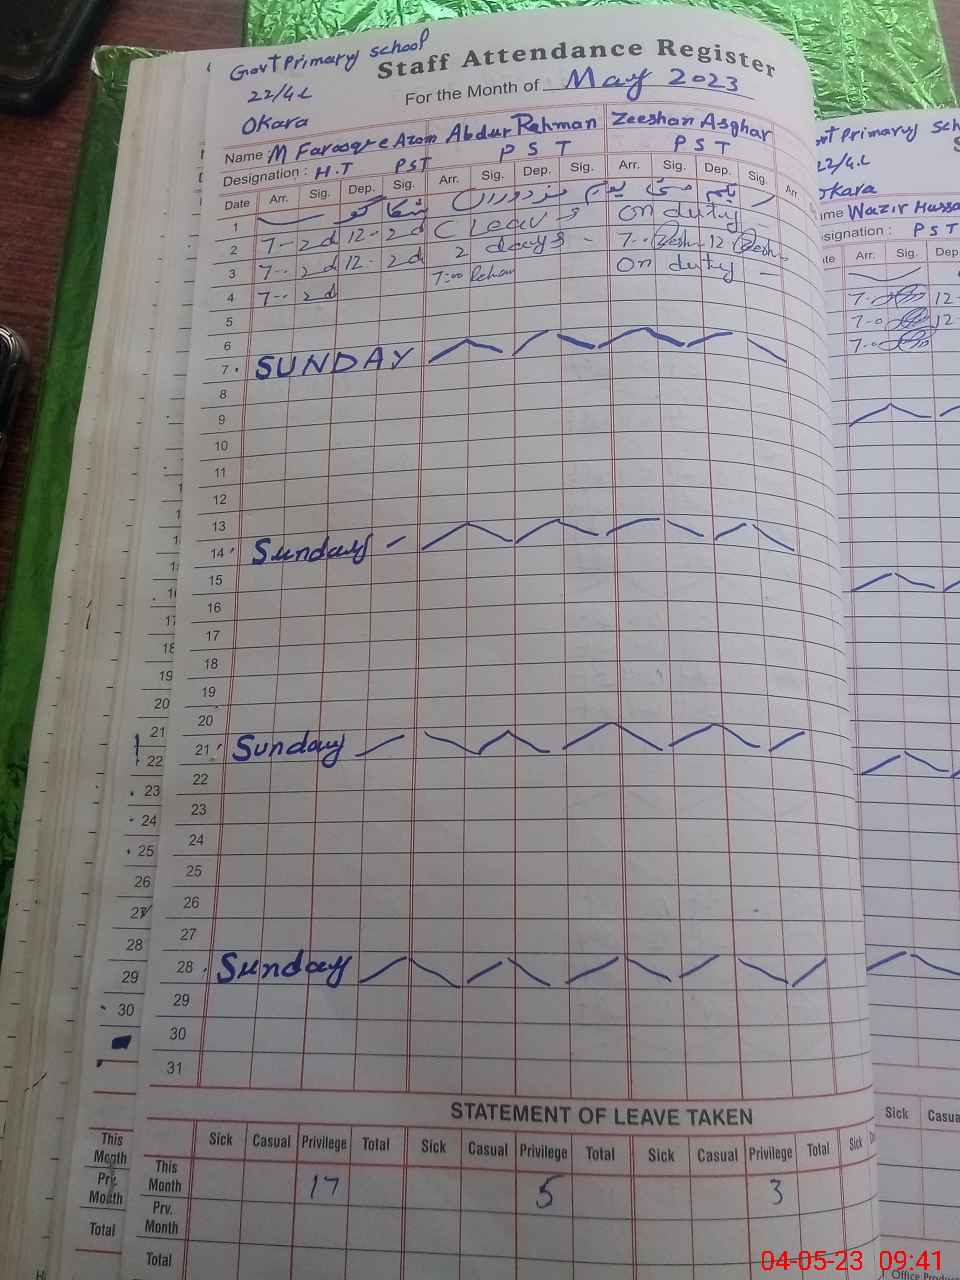 Govt Primary school
22/4L
Okara
Staff Attendance Register
For the Month of May 2023
Name : M Farooq-e-Azam Abdur Rehman Zeeshan Asghar
Designation : H.T PST P S T P S T
Date Arr. Sig. Dep. Sig. Arr. Sig. Dep. Sig. Arr. Sig. Dep. Sig. Arr
1 یکم مئی یوم مزدوراں شکاگو
2 7-- 12-- C Leave for on duty
3 7-- 12-- 2 days 7-- 12
4 7-- 7:00 Rehan on duty
5
6
7 SUNDAY
8
9
10
11
12
13
14 Sunday
15
16
17
18
19
20
21 Sunday
22
23
24
25
26
27
28 Sunday
29
30
31
STATEMENT OF LEAVE TAKEN
Sick Casual Privilege Total Sick Casual Privilege Total Sick Casual Privilege Total Sick
This Month 17 5 3
Prv. Month
Total
ovt Primary Sch
22/4L
Okara
ame Wazir Hussa
esignation : P S T
ate Arr. Sig. Dep
7-0 12-
7-0 12-
7-0
Sick Casua
16
17
18
19
20
21
22
23
24
25
26
27
28
29
30
This Month
Prv. Month
Total
Office Produ
04-05-23 09:41